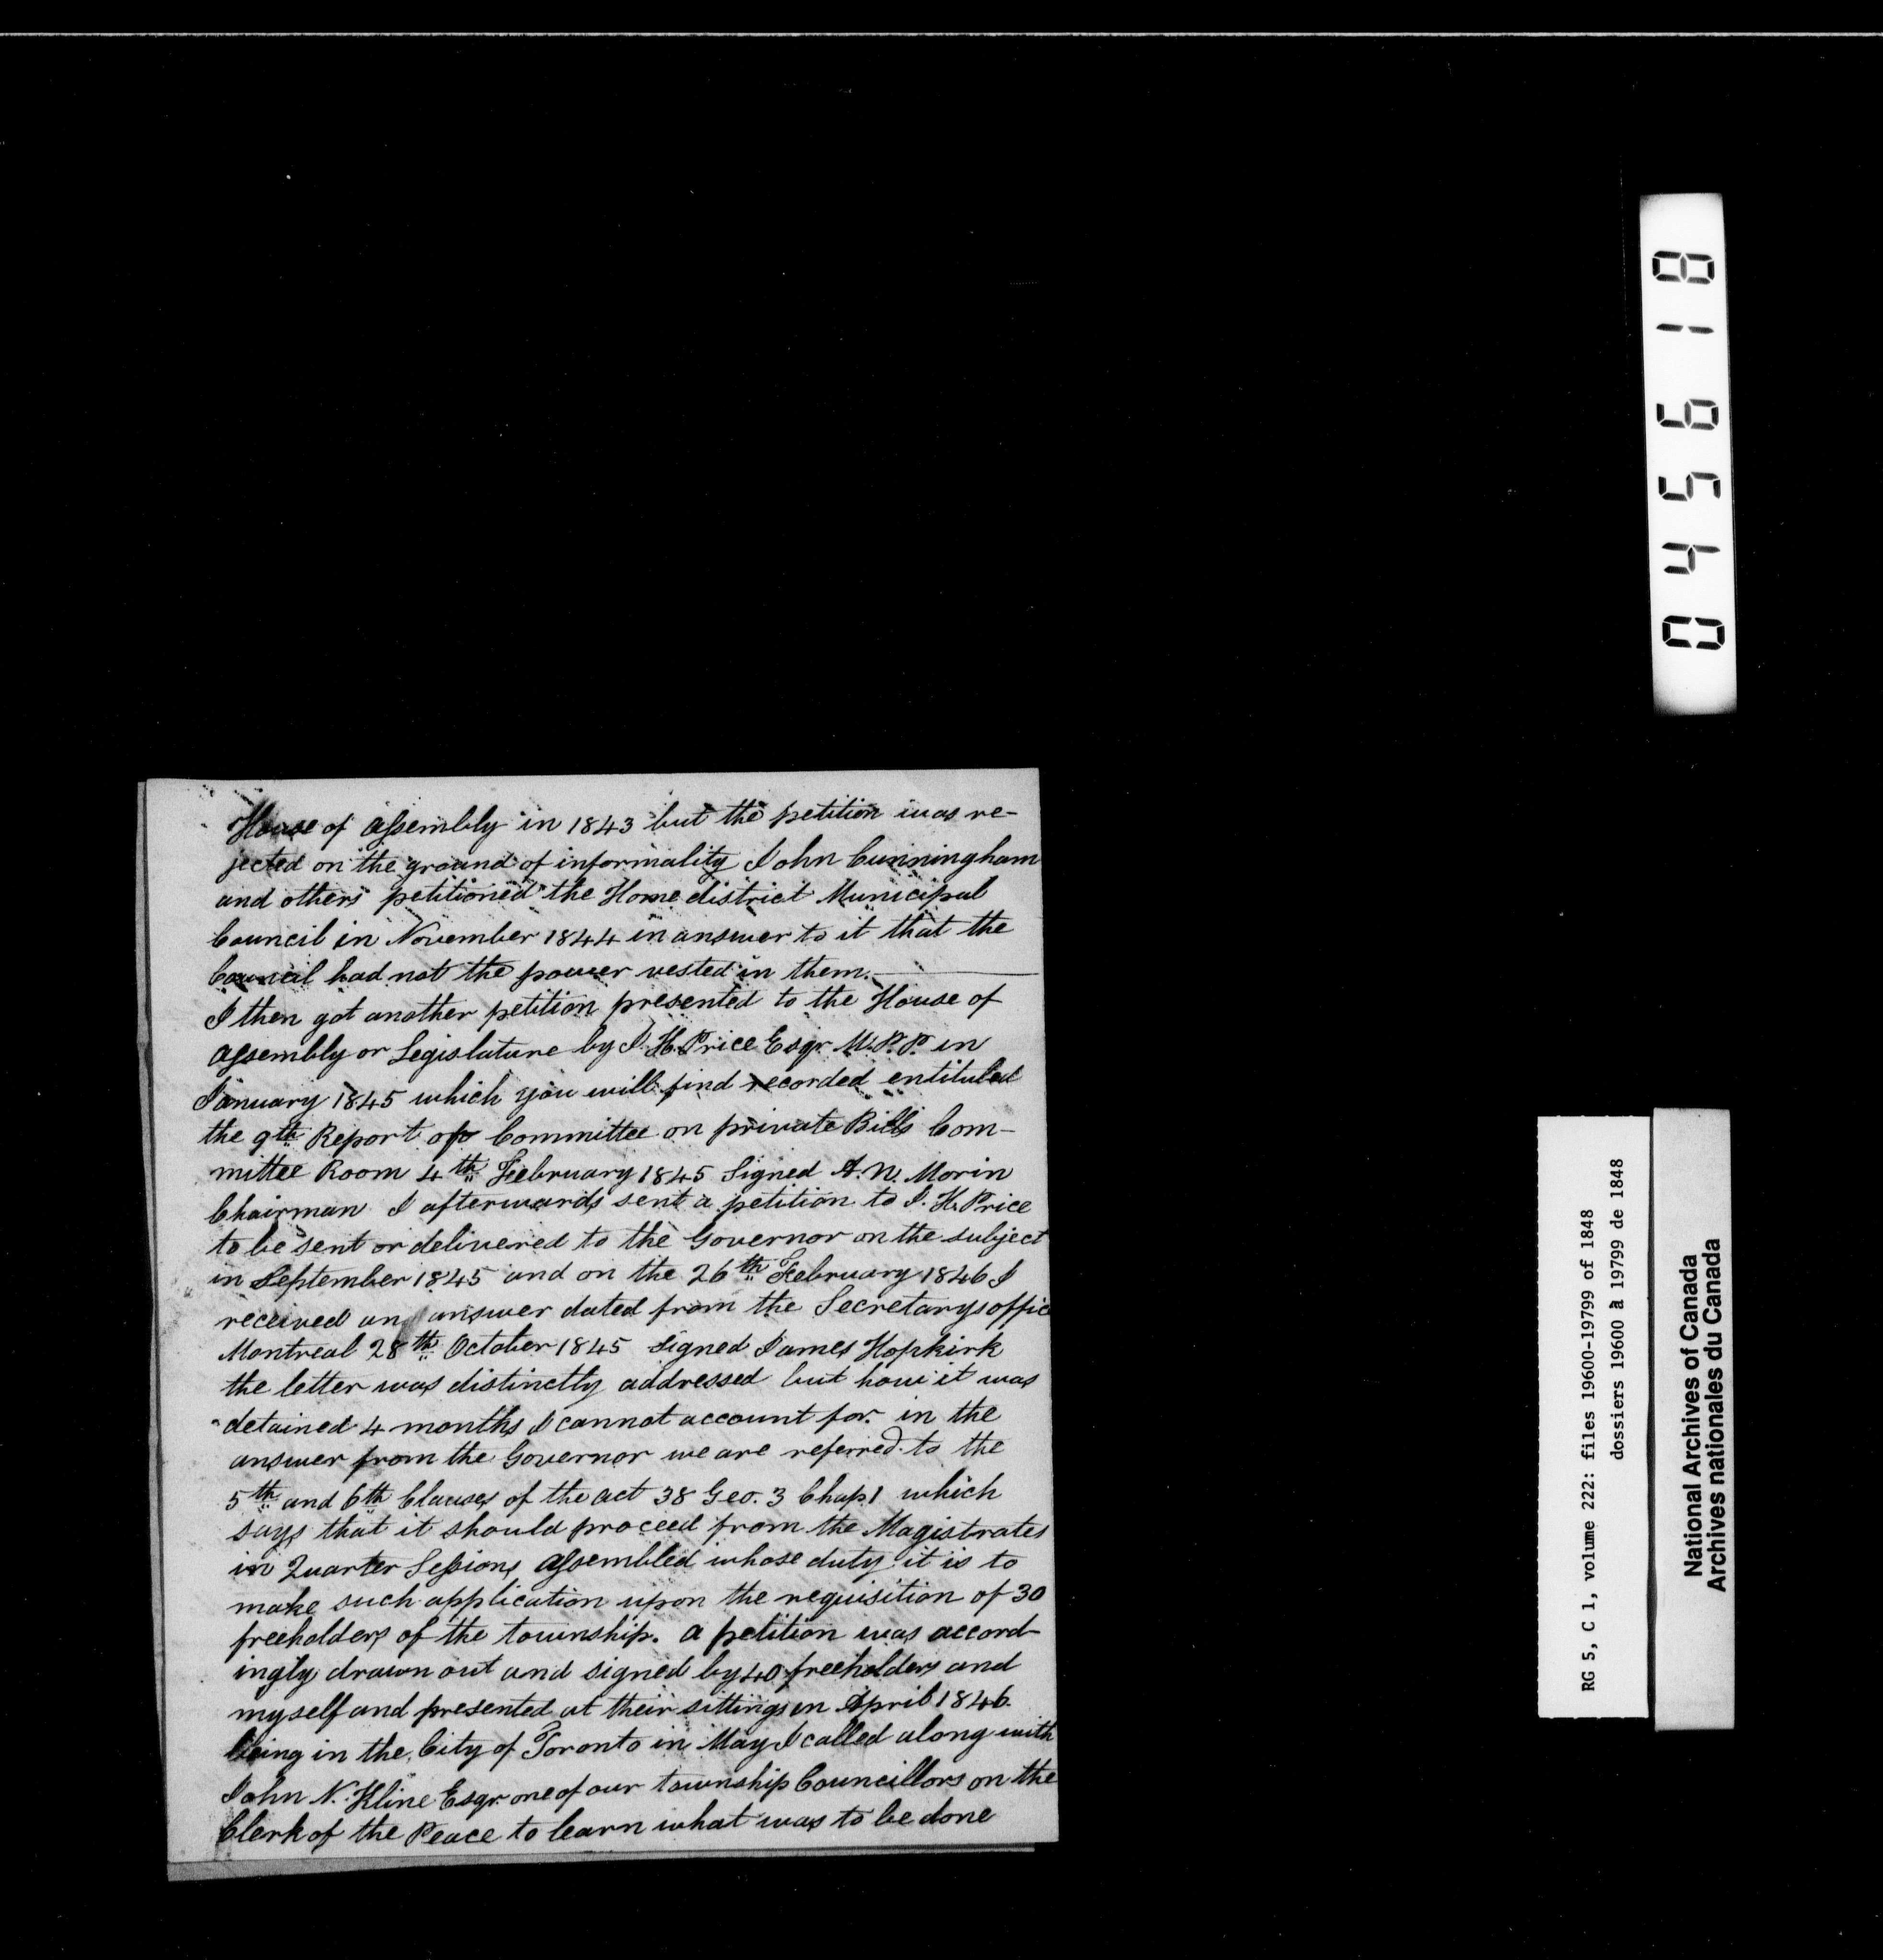 House of assembly in 1843 but the petition was re-
jected on the ground of informality John Cunningham
and others petitioned the Home district Municipal
Council in November 1844 in answer to it that the
Council had not the power vested in them.
I then got another petition presented to the House of
assembly or Legislature by J. H. Price Esqr. M.P.P. in
January 1845 which you will find recorded entituled
the 9th Report of Committee on private Bills Com-
mittee Room 4th February 1845 Signed A. N. Morin
Chairman I afterwards sent a petition to J. H. Price
to be sent or delivered to the Governor on the subject
in September 1845 and on the 26th February 1846 I
received an answer dated from the Secretarys offic
Montreal 28th October 1845 signed James Hopkirk
the letter was distinctly addressed but how it was
detained 4 months I cannot account for. in the
answer from the Governor we are referred to the
5th and 6th Clauses of the act 38 Geo. 3 Chap. 1 which
says that it should proceed from the Magistrates
in Quarter Sessions assembled whose duty it is to
make such application upon the requisition of 30
freeholders of the township. a petition was accord-
ingly drawn out and signed by 40 freeholders and
myself and presented at their sittings in April 1846.
being in the City of Toronto in May I called along with
John N. Kline Esqr. one of our township Councillors on the
Clerk of the Peace to learn what was to be done
045618
RG 5, C 1, volume 222: files 19600-19799 of 1848
dossiers 19600 à 19799 de 1848
National Archives of Canada
Archives nationales du Canada